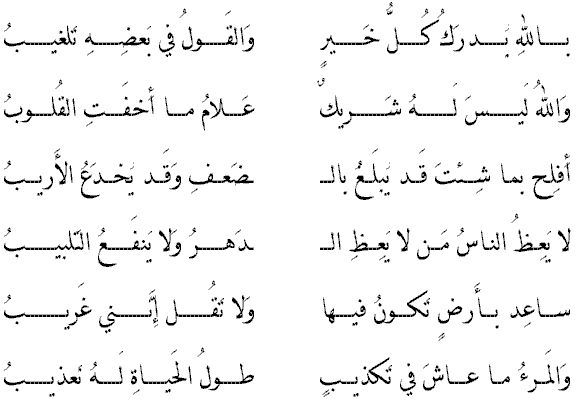 بِاللهِ يُدرَكُ كُلُّ خَيرٍ وَالقَولُ في بَعضِهِ تَلغيبُ
وَاللهُ لَيسَ لَهُ شَريكٌ عَلامُ ما أَخفَتِ القُلوبُ
أَفلِح بِما شِئتَ قَد يُبلَغُ بالـ ـضَعفِ وَقَد يُخدَعُ الأَريبُ
لا يَعِظُ الناسُ مَن لا يَعِظِ الـ ـدَهرُ وَلا يَنفَعُ التَلبيبُ
ساعِد بِأَرضٍ تَكونُ فيها وَلا تَقُل إِنَّني غَريبُ
وَالمَرءُ ما عاشَ في تَكذيبٍ طولُ الحَياةِ لَهُ تَعذيبُ